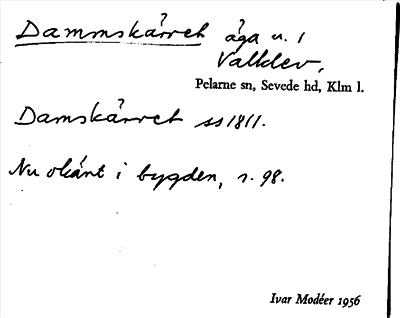 Dammskärret äga u. 1
Valldev,
Pelarne sn, Sevede hd, Klm l.
Damskärret ss 1811.
Nu okänt i bygden, s. 98.
Ivar Modéer 1956